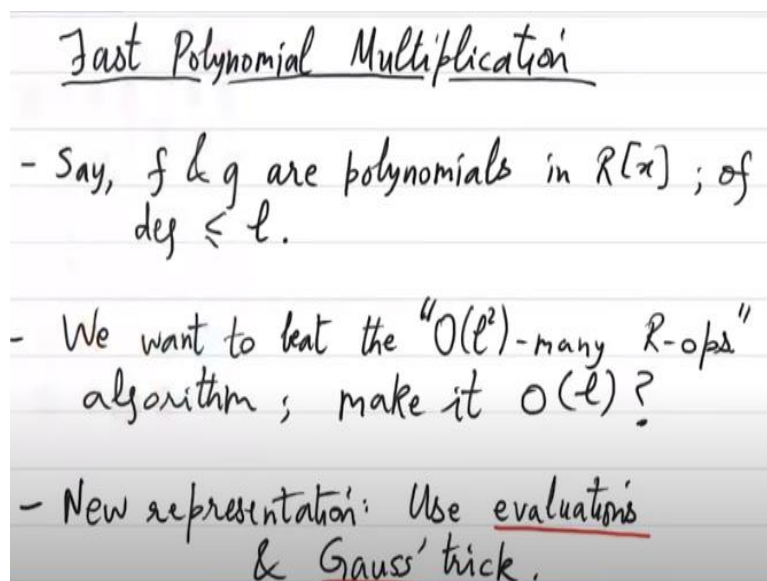 Fast Polynomial Multiplication
- Say, f & g are polynomials in R[x] ; of
deg ≤ l.
- We want to beat the "O(l²)-many R-ops"
algorithm ; make it O(l) ?
- New representation: Use evaluations
& Gauss' trick.